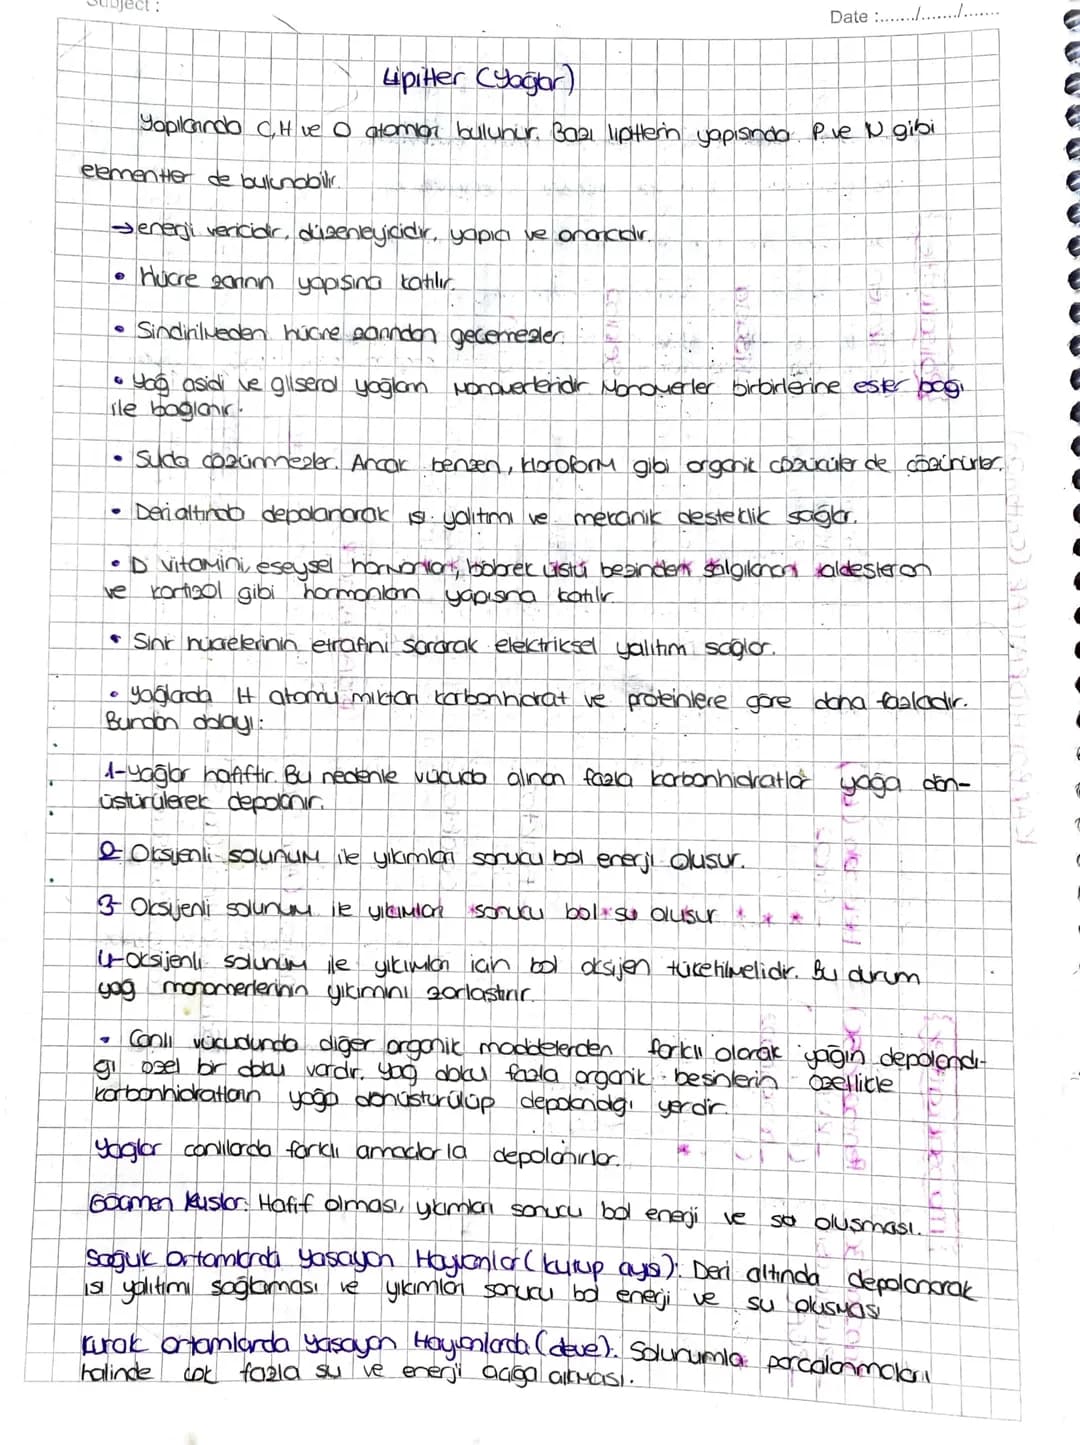 Subject :
Date :......./......../.......
Lipitler (Yağlar)
Yapılarında C, H ve O atomları bulunur. Bazı lipitlerin yapısında P ve N gibi
elementler de bulunabilir.
→enerji vericidir, düzenleyicidir, yapıcı ve onarıcıdır.
• Hücre zarının yapısına katılır.
• Sindirilmeden hücre zarından geçemezler.
• Yağ asidi ve gliserol yağların monomerleridir Monomerler birbirlerine ester bağı
ile bağlanır.
• Suda çözünmezler. Ancak benzen, kloroform gibi organik çözücüler de çözünürler.
• Deri altında depolanarak ısı yalıtımı ve mekanik desteklik sağlar.
• D vitamini, eşeysel hormonlar, böbrek üstü bezinden salgılanan aldesteron
ve kortizol gibi hormonların yapısına katılır.
• Sinir hücrelerinin etrafını sararak elektriksel yalıtım sağlar.
• yağlarda H atomu miktarı karbonhidrat ve proteinlere göre daha fazladır.
Bundan dolayı:
1-yağlar hafiftir. Bu nedenle vücuda alınan fazla karbonhidratlar yağa dön-
üştürülerek depolanır.
2- Oksijenli solunum ile yıkımları sonucu bol enerji oluşur.
3- Oksijenli solunum ile yıkımları sonucu bol su oluşur * * *
4-oksijenli solunum ile yıkımları için bol oksijen tüketilmelidir. Bu durum
yağ monomerlerinin yıkımını zorlaştırır.
• Canlı vücudunda diğer organik maddelerden farklı olarak yağın depolandı-
ğı özel bir doku vardır. Yağ doku fazla organik besinlerin özellikle
karbonhidratların yağa dönüştürülüp depolandığı yerdir.
Yağlar canlılarda farklı amaçlarla depolanırlar.
Göçmen Kuşlar: Hafif olması, yıkımları sonucu bol enerji ve su oluşması.
Soğuk Ortamlarda Yaşayan Hayvanlar (kutup ayısı): Deri altında depolanarak
ısı yalıtımı sağlaması ve yıkımları sonucu bol enerji ve su oluşması
Kurak ortamlarda Yaşayan Hayvanlarda (deve): Solunumla parçalanmaları
halinde çok fazla su ve enerji açığa çıkması.